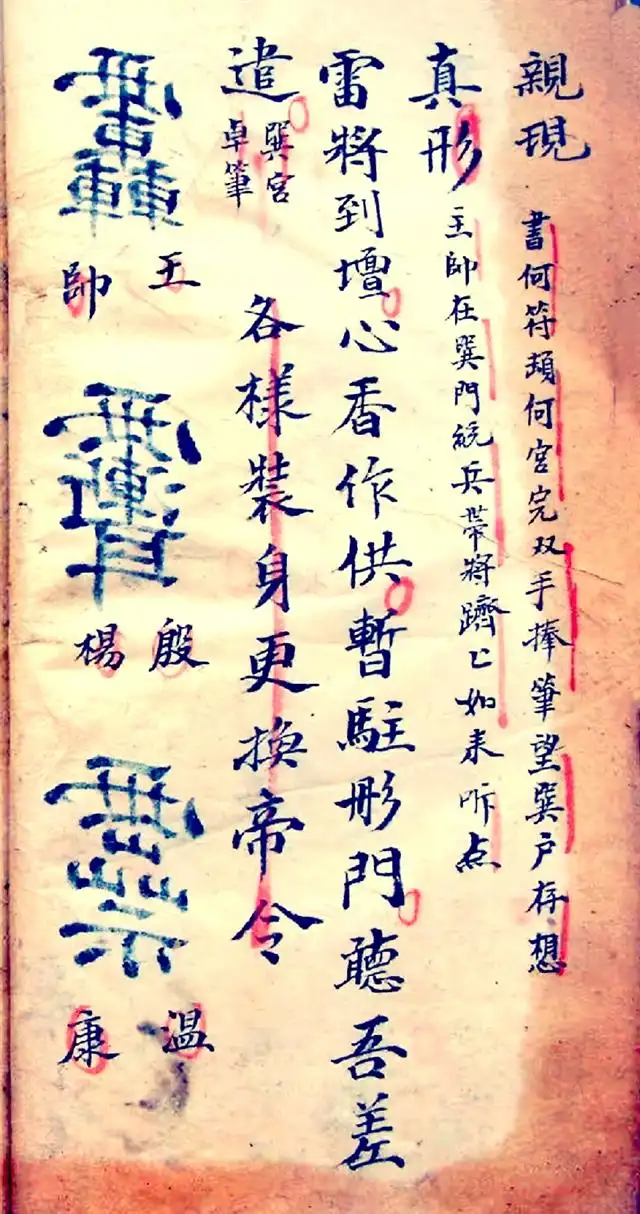 親現 書何符頭何宮完双手捧筆望巽戶存想
真形 主帥在巽門統兵帶將躋〻如来听点
雷將到壇心香作供暫駐形門聽吾差
遣 巽宮卓筆 各樣裝身更換帝令
王帥
殷楊
温康